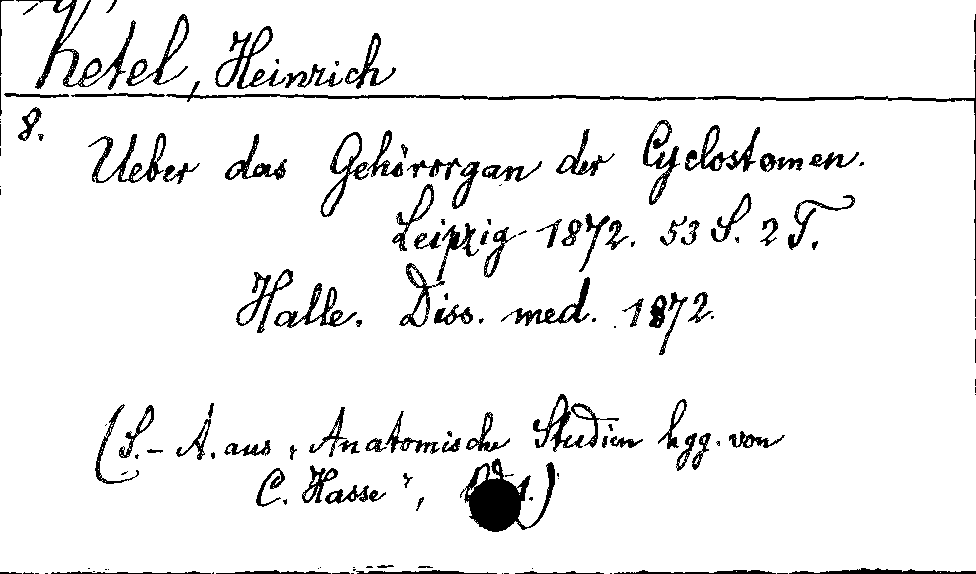 Ketel, Heinrich
8.
Ueber das Gehörorgan der Cyclostomen.
Leipzig 1872. 53 S. 2 T.
Halle. Diss. med. 1872.
(S.-A. aus „Anatomische Studien hgg. von
C. Hasse", 1.)